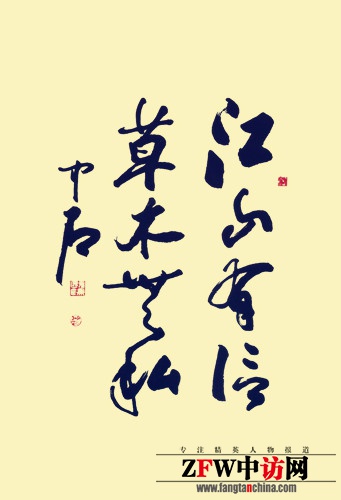 江山有信
草木无私
中石
专注精英人物报道
ZFW中访网
www.fangtanchina.com